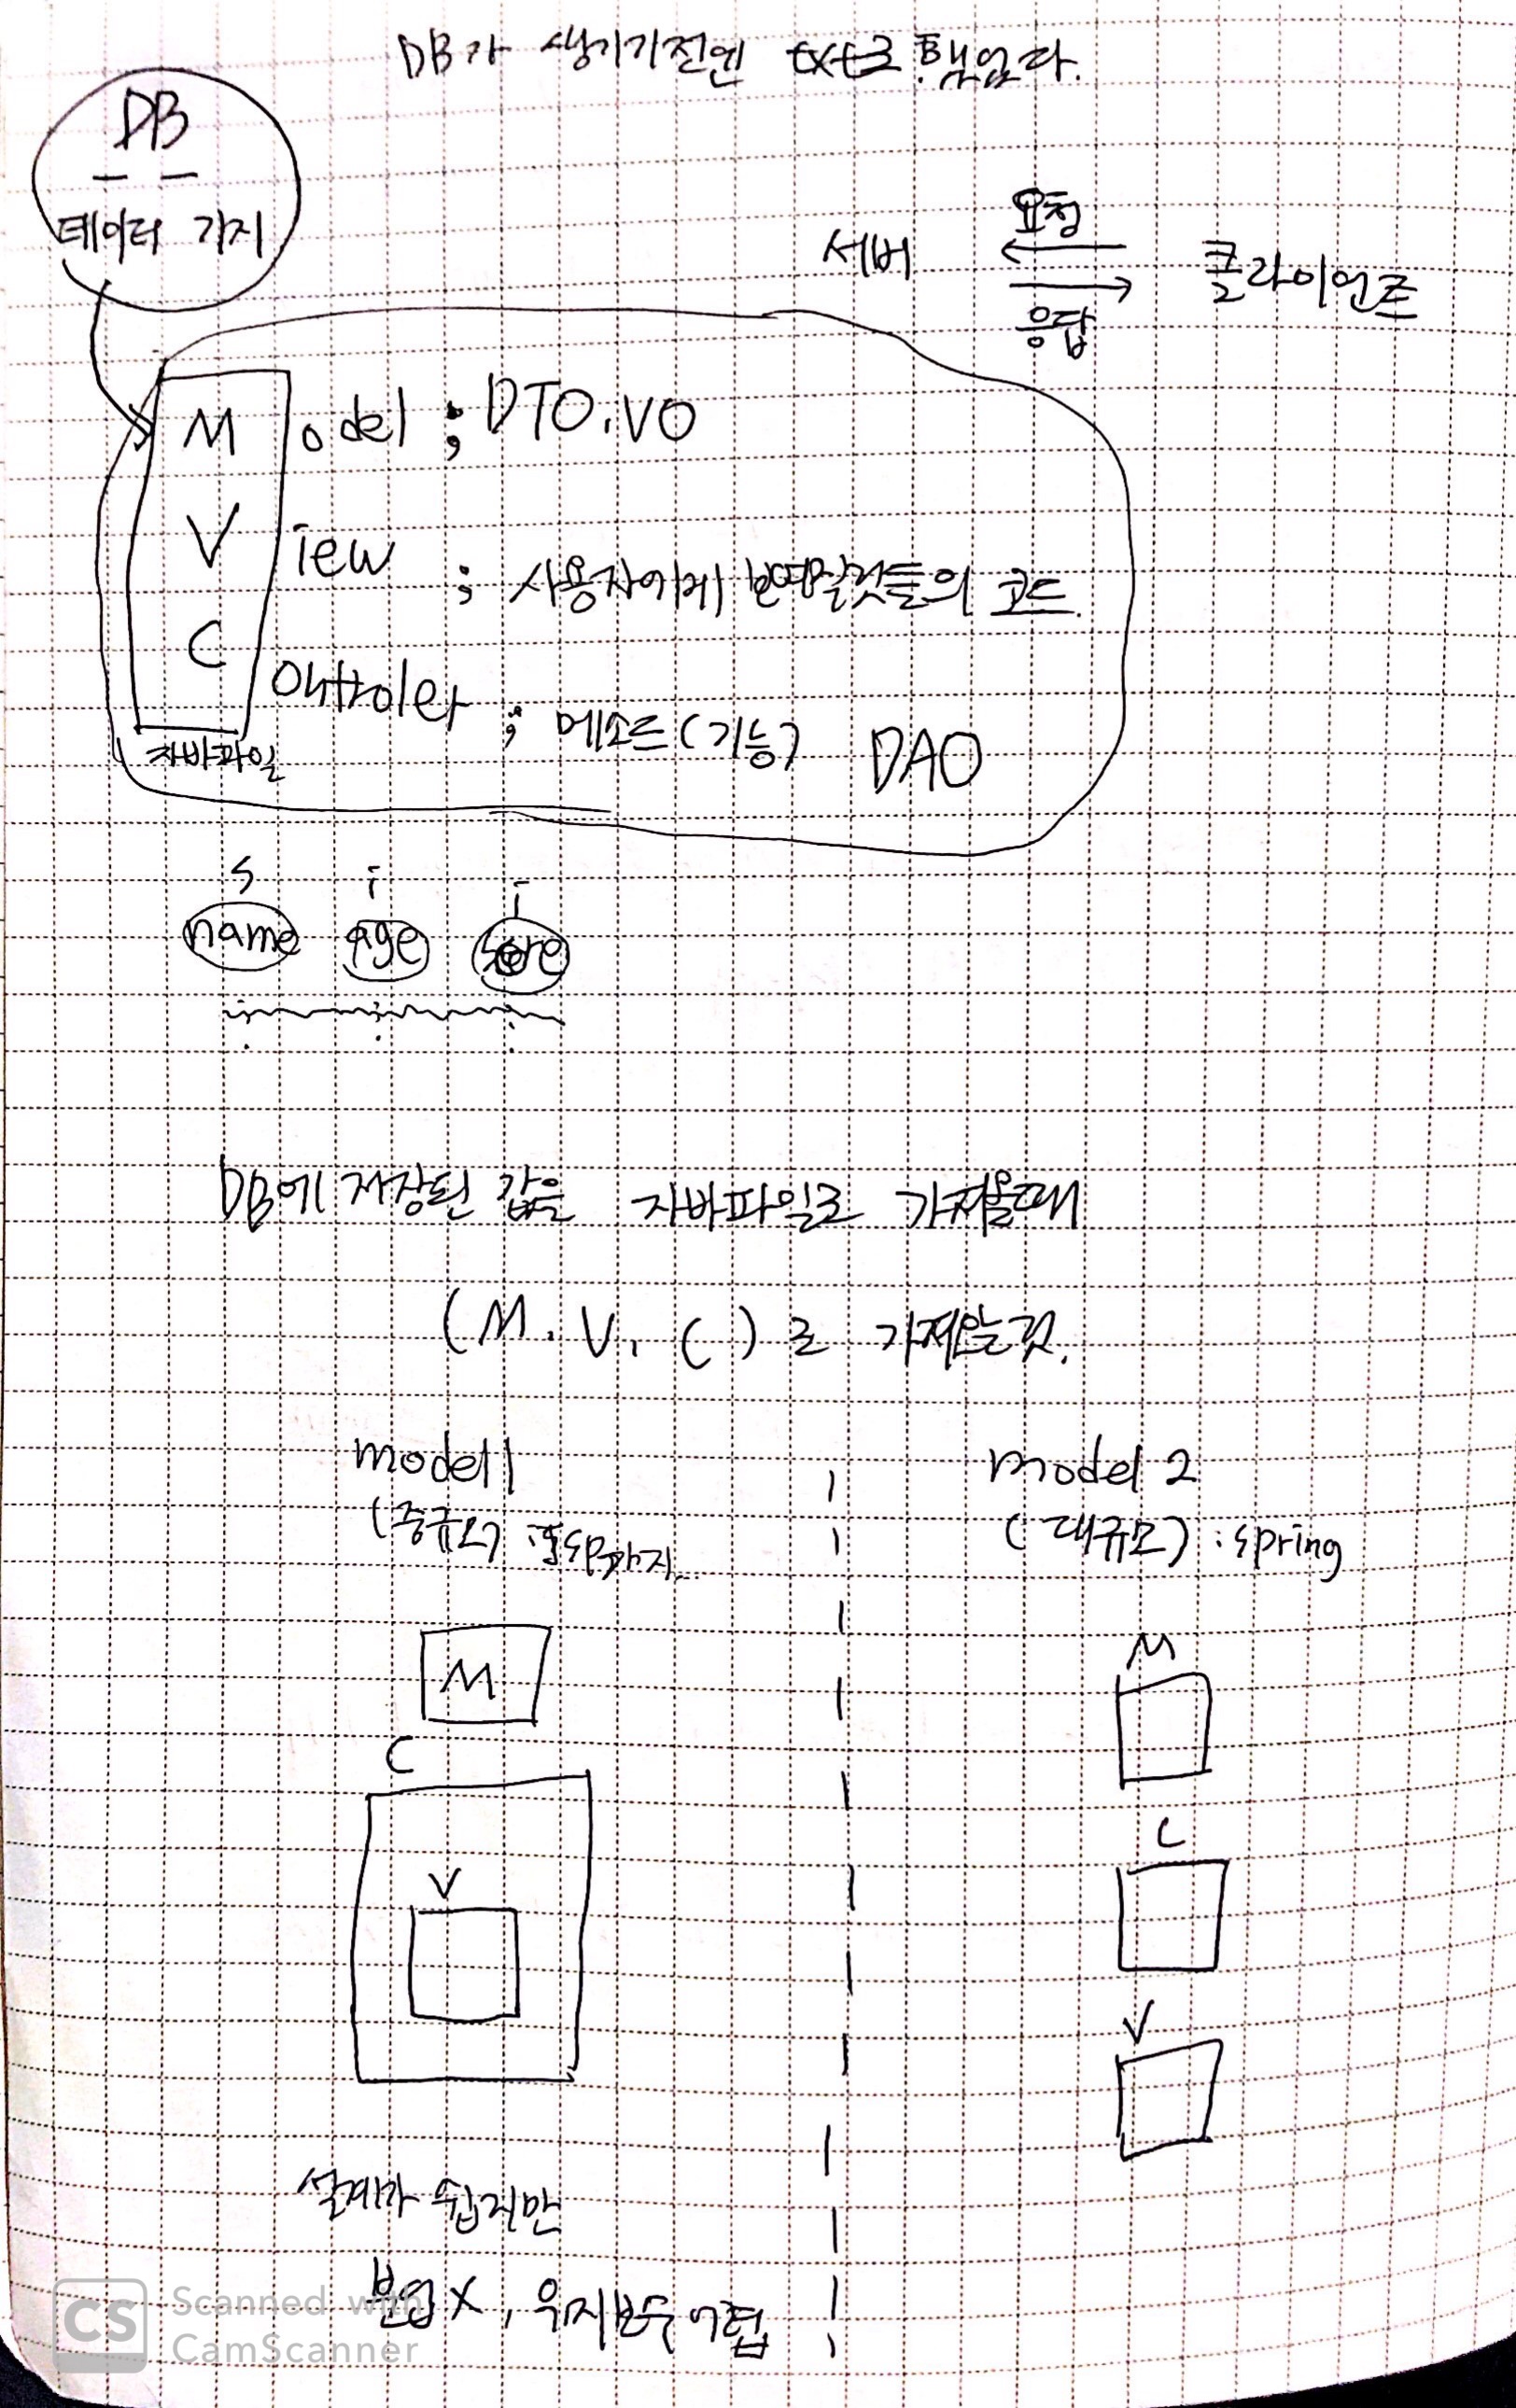 DB가 생기기전엔 txt로 했었다.
DB
데이터 가지
요청
세버
클라이언트
응답
Model ; DTO. VO
View ; 사용자에게 보여질것들의 코드.
Controler ; 메소드 (기능) DAO
자바파일
S i i
name age
DB에 저장된 값을 자바파일로 가져올때
(M. V. C) 로 가져올것.
model1
model 2
(중규모) : JSP까지.
(대규모) : spring
M
M
C
C
V
V
설계가 쉽지만
분업X, 유지보수 어렵
CS Scanned with
CamScanner